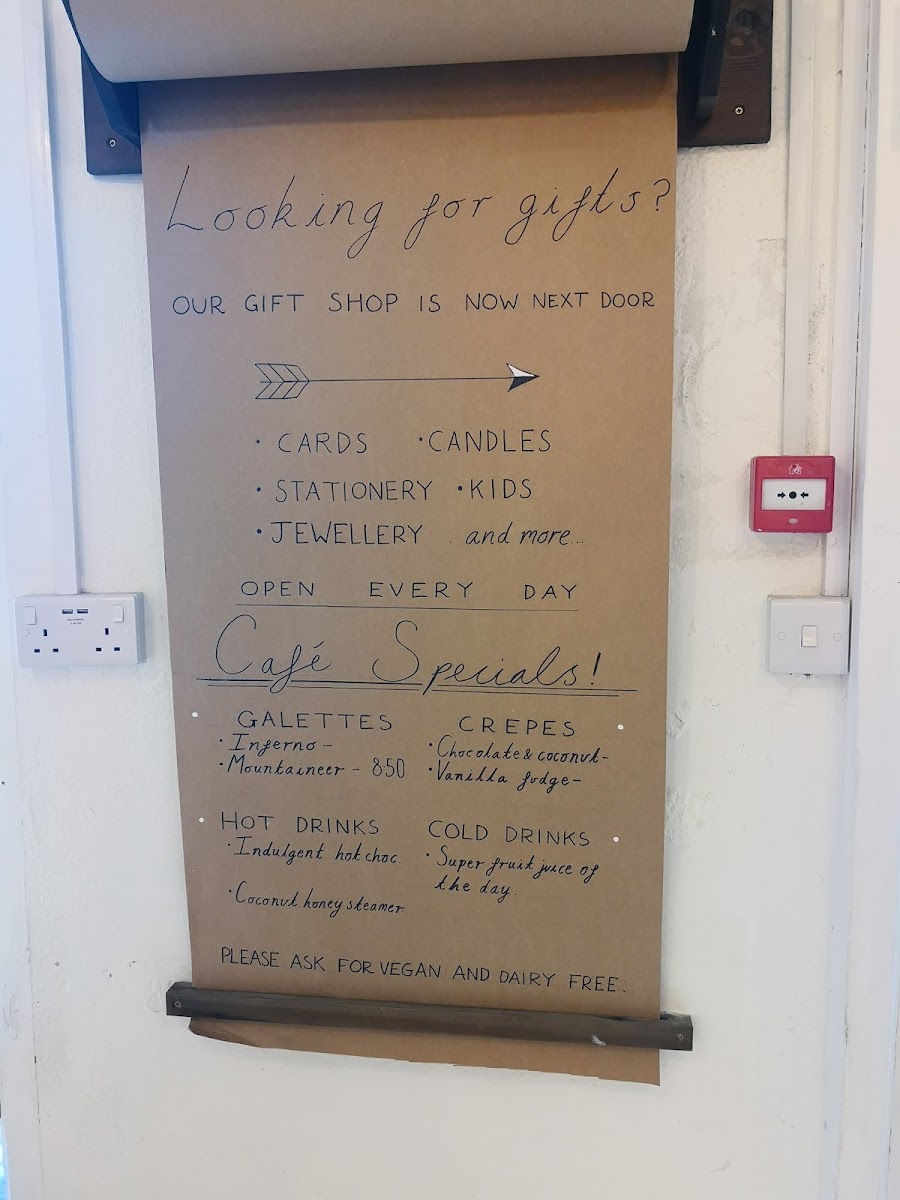 Looking for gifts?
OUR GIFT SHOP IS NOW NEXT DOOR
· CARDS · CANDLES
· STATIONERY · KIDS
· JEWELLERY and more...
OPEN EVERY DAY
Café Specials!
GALETTES
· Inferno -
· Mountaineer - 8.50
CREPES
· Chocolate & coconut -
· Vanilla fudge -
HOT DRINKS
· Indulgent hot choc.
· Coconut honey steamer.
COLD DRINKS
· Super fruit juice of
the day.
PLEASE ASK FOR VEGAN AND DAIRY FREE.